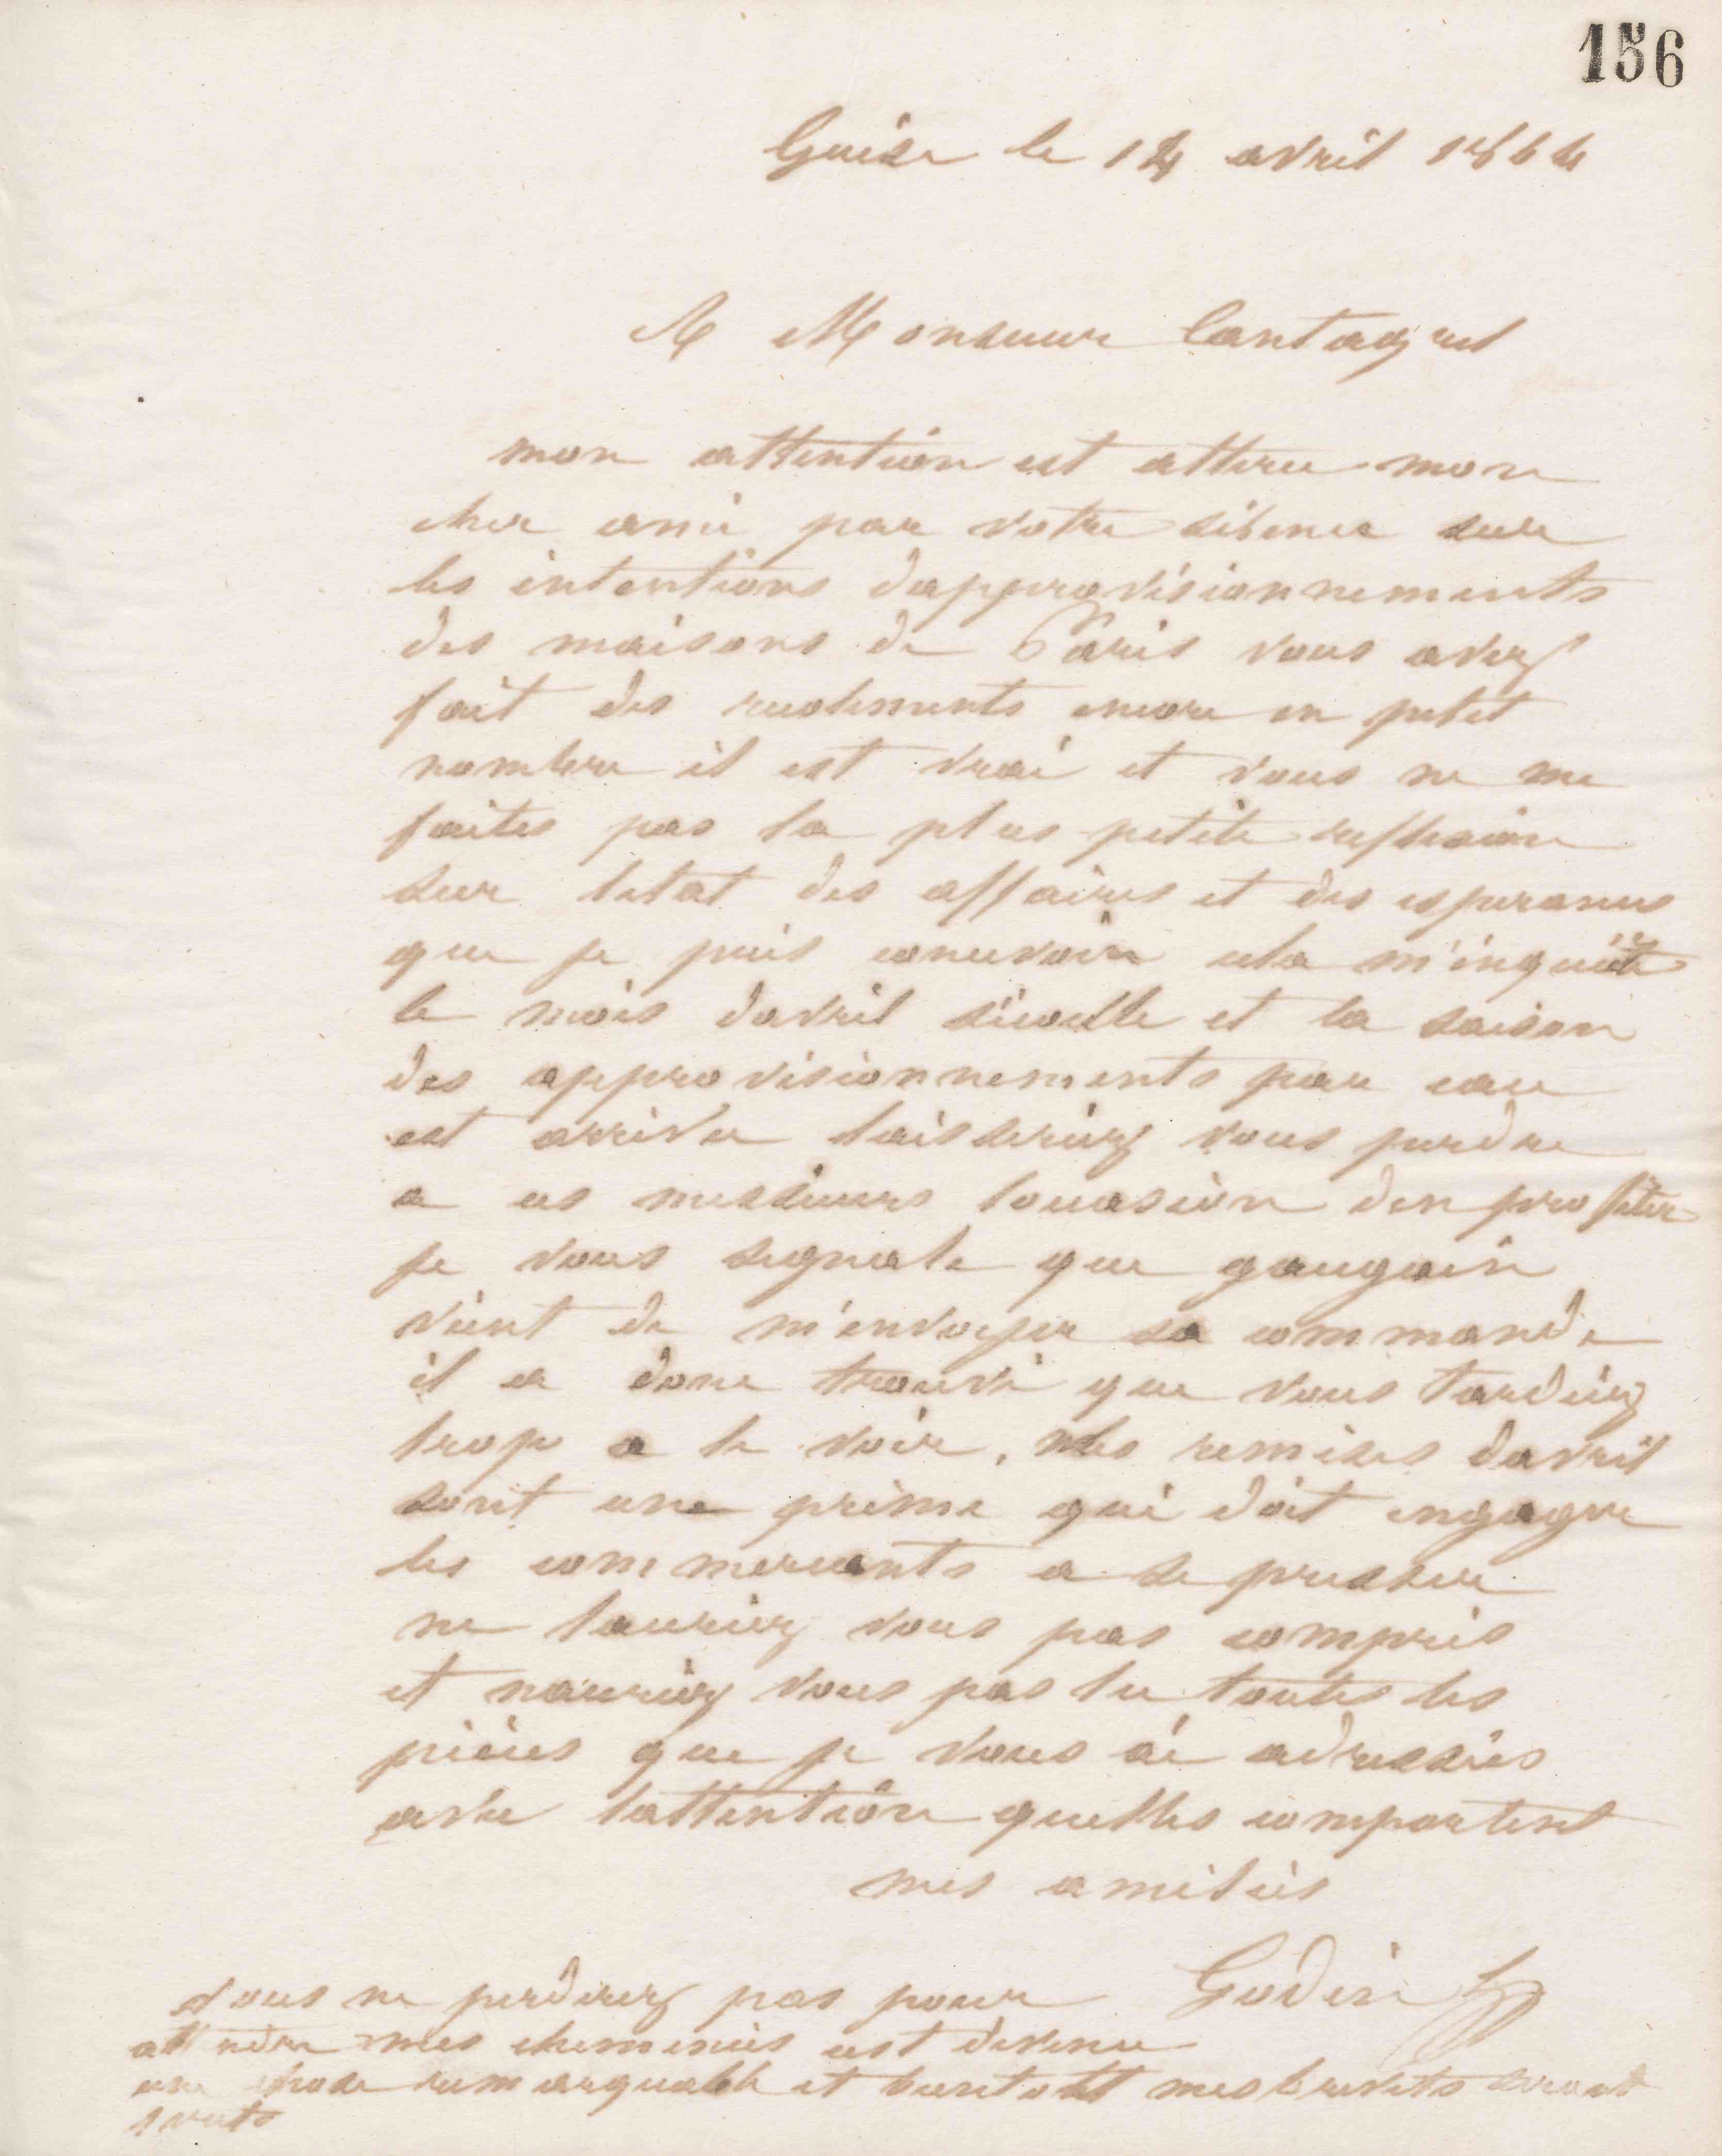 156
Guise le 14 avril 1864
A Monsieur Cantagrel
mon attention est attiree mon
cher ami par votre silence sur
les intentions dapprovisionnements
des maisons de Paris vous avez
fait des reglements encore en petit
nombre il est vrai et vous ne me
faites pas la plus petite reflexion
sur letat des affaires et des esperances
que je puis concevoir cela m'inquiète
le mois davril sécoule et la saison
des approvisionnements par eau
est arrivee laisseriez vous perdre
a ces messieurs loccasion den profiter
je vous signale que gaugain
vient de m'envoyer sa commande
il a donc trouvé que vous tardiez
trop a le voir, mes remises davril
sont une prime qui doit engager
les commercants a se presser
ne lauriez vous pas compris
et nauriez vous pas lu toutes les
pièces que je vous ai adressées
avec lattention quelles comportent
mes amitiés
Godin
vous ne perdrez pas pour
attendre mes cheminées est devenu
une chose remarquable et bientott mes brevets seront